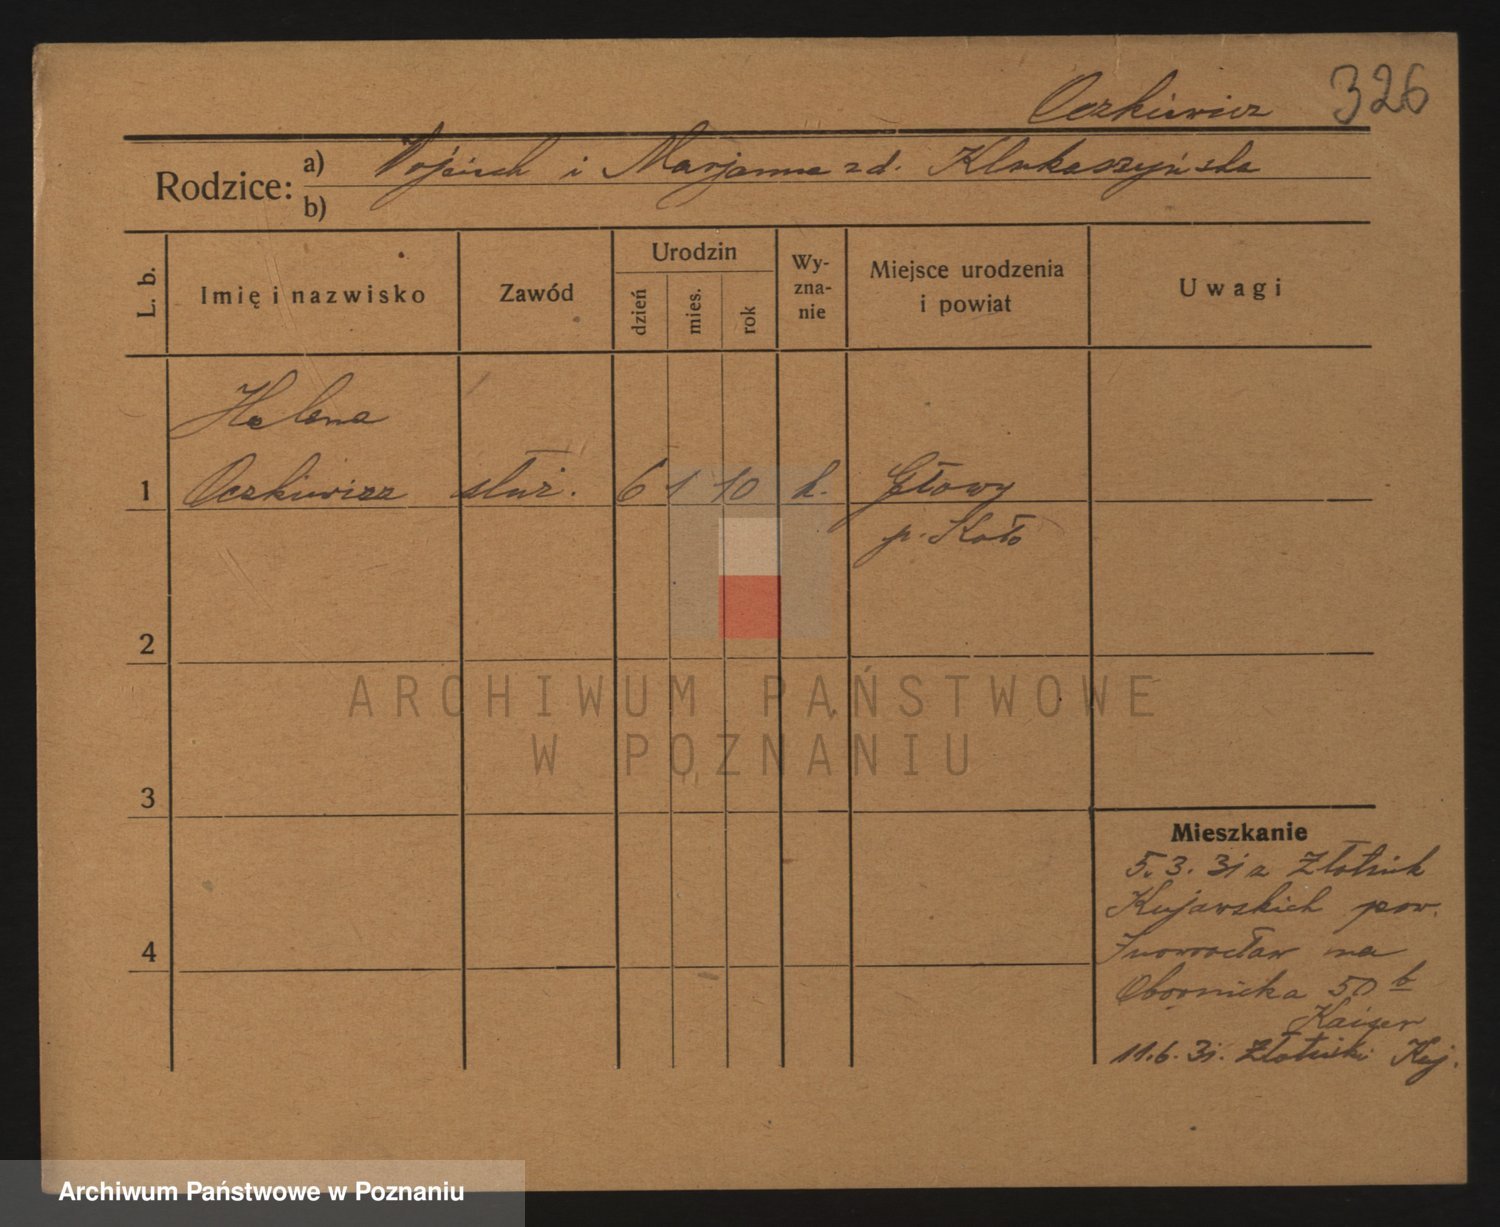 Oczkiewicz 326
Rodzice: a) Wojciech i Marjanna z d. Klukaszyńska
b)
L. b. Imię i nazwisko Zawód Urodzin dzień mies. rok Wy-zna-nie Miejsce urodzenia i powiat Uwagi
Helena
1 Oczkiewicz służ. 6 1 10 k. Głowy
p. Koło
2
ARCHIWUM PAŃSTWOWE
W POZNANIU
3
4
Mieszkanie
5.3.31 z Złotnik
Kujawskich pow.
Inowrocław na
Obornicka 50 b
Kaiser
11.6.31. Złotniki Kuj.
Archiwum Państwowe w Poznaniu